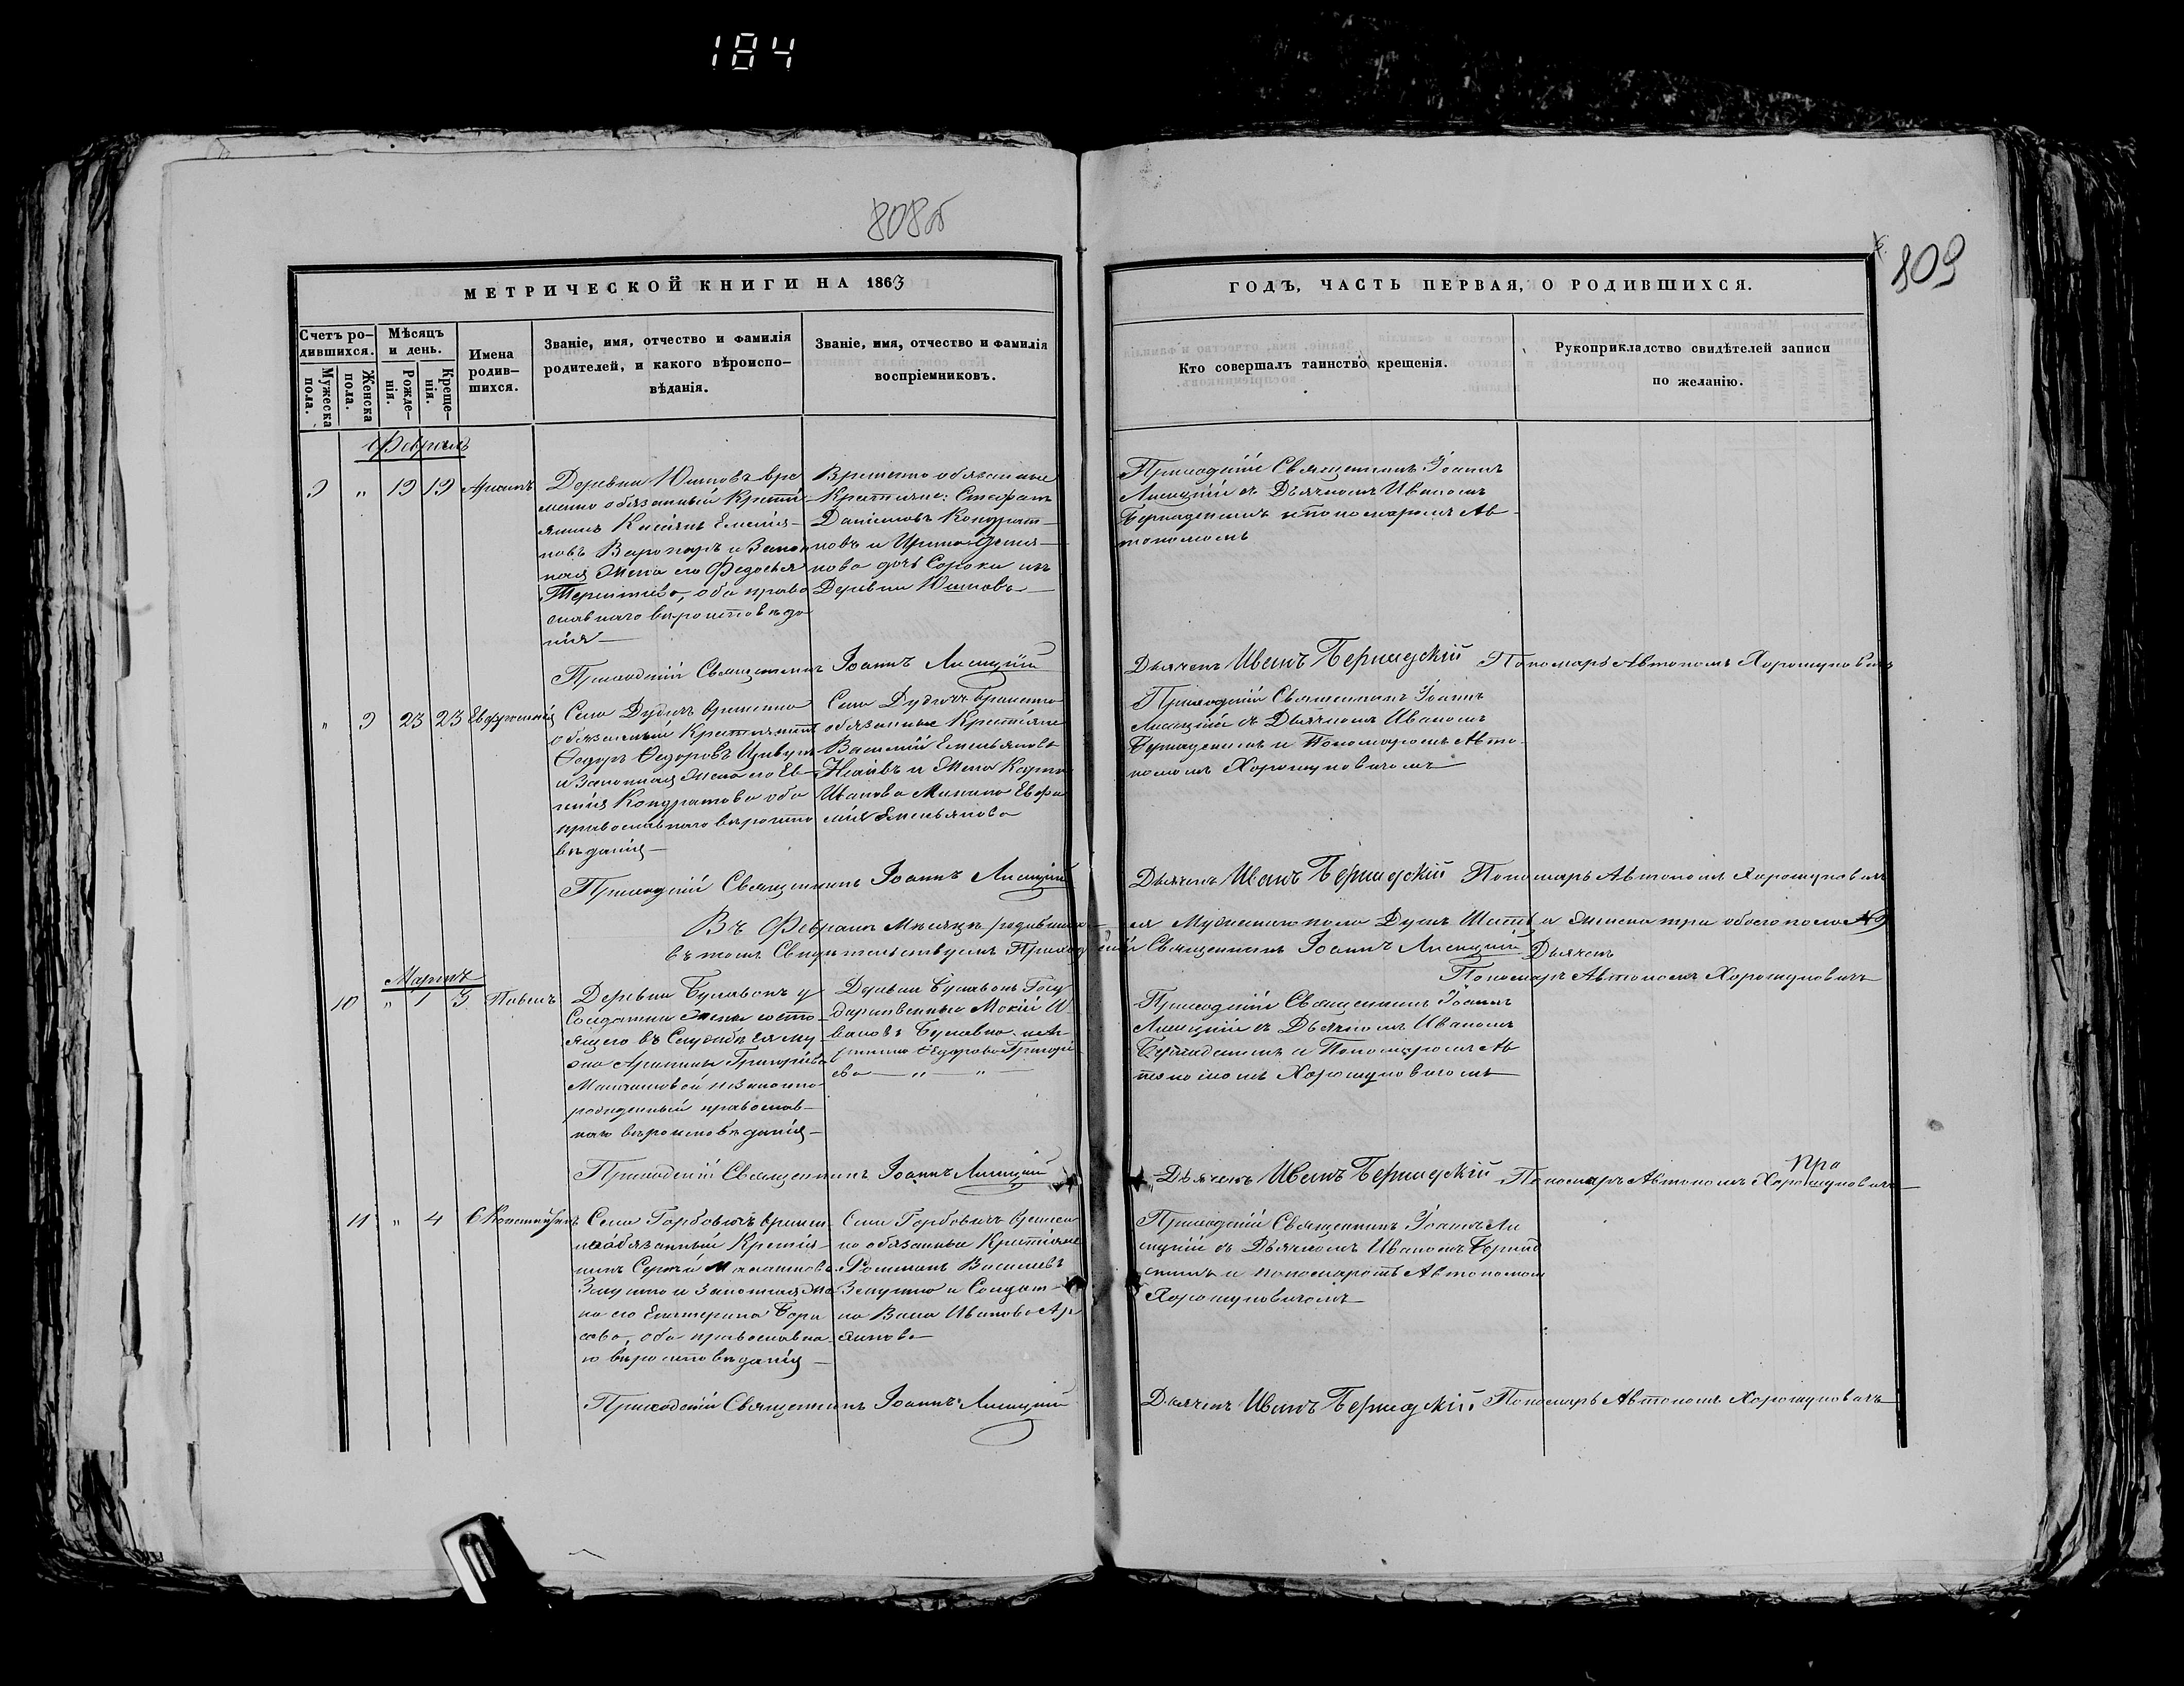 184
808об
809
МЕТРИЧЕСКОЙ КНИГИ НА 1863
ГОДЪ, ЧАСТЬ ПЕРВАЯ, О РОДИВШИХСЯ.
Счетъ ро-
дившихся.
Мужеска
пола.
Женска
пола.
Мѣсяцъ
и день.
Рожде-
нія.
Креще-
нія.
Имена
родив-
шихся.
Званіе, имя, отчество и фамилія
родителей, и какого вѣроиспо-
вѣданія.
Званіе, имя, отчество и фамилія
воспріемниковъ.
Кто совершалъ таинство крещенія.
Рукоприкладство свидѣтелей записи
по желанію.
Февраль
9 " 19 19
Деревни вре
менно обязанный Кресть
янинъ Емелія-
новъ и Закон
ная Жена его Федосья
Терентіева, оба право
славнаго вѣроисповѣда
нія
Временно обязанные
Крестьяне: Стефанъ
Даніиловъ Кондрат-
новъ и Ирина
нова дочь Сорока изъ
Деревни
Приходскій Священникъ Іоаннъ
Лисицкій съ Дьячкомъ Иваномъ
Бернадскимъ и пономаремъ Ав-
тономомъ
Приходскій Священникъ Іоаннъ Лисицкій
Дьячекъ Иванъ Бернадскій Пономарь Автономъ Хорошуновичъ
" 9 23 23 Евфросинія
Села Дудичъ временно
обязанный Крестьянинъ
Ѳедоръ Ѳедоровъ
и Законная Жена его Ев-
Кондратова оба
православнаго вѣроиспо
вѣданія
Села Дудичъ временно
обязанные Крестьяне
Василій Емельяновъ
и Жена
Иванова
Емельянова
Приходскій Священникъ Іоаннъ
Лисицкій съ Дьячкомъ Иваномъ
Бернадскимъ и Пономаремъ Авто-
номомъ Хорошуновичемъ
Приходскій Священникъ Іоаннъ Лисицкій
Дьячекъ Иванъ Бернадскій Пономарь Автономъ Хорошуновичъ
Въ Февралѣ Мѣсяцѣ родившихся Мужескаго пола Душъ Шесть а Женска три обоего пола 9
въ томъ Свидѣтельствуемъ Приходскій Священникъ Іоаннъ Лисицкій Дьячекъ
Пономарь Автономъ Хорошуновичъ
Мартъ
10 " 1 3 Павелъ
Деревни у
Солдатки Жены состо-
ящего въ Службѣ ея му-
жа Григорьева
незаконно
рожденный православ-
наго вѣроисповѣданія
Деревни Госу
дарственный Мокій И-
вановъ
Ѳедорова Григорь
ева
Приходскій Священникъ Іоаннъ
Лисицкій съ Дьячкомъ Иваномъ
Бернадскимъ и Пономаремъ Ав
тономомъ Хорошуновичемъ
Приходскій Священникъ Іоаннъ Лисицкій
Дьячекъ Иванъ Бернадскій Пономарь Автономъ Хорошуновичъ
11 " 4 6 Константинъ
Села Горбовичъ времен-
нообязанный Крестья-
нинъ Сергѣй
и Законная Же
на его Екатерина Бори
сова, оба православна
го вѣроисповѣданія
Села Горбовичъ времен
но обязанные Крестьяне
Романъ Васильевъ
и Солдат-
ка Ивановна
Приходскій Священникъ Іоаннъ Ли
сицкій съ Дьячкомъ Иваномъ Бернад
скимъ и пономаремъ Автономом
Хорошуновичемъ
Приходскій Священникъ Іоаннъ Лисицкій
Дьячекъ Иванъ Бернадскій Пономарь Автономъ Хорошуновичъ